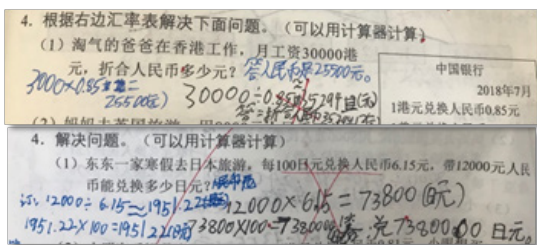 4. 根据右边汇率表解决下面问题。（可以用计算器计算）
（1）淘气的爸爸在香港工作，月工资30000港
元，折合人民币多少元？答人民币是25500元。
3000×0.85=
25500(元)
30000÷0.85≈35294
中国银行
2018年7月
1港元兑换人民币0.85元
4. 解决问题。（可以用计算器计算）
（1）东东一家寒假去日本旅游。每100日元兑换人民币6.15元，带12000元人民
币能兑换多少日元？
12000÷6.15≈1951.22
12000×6.15=73800(日元)
1951.22×100=195122
73800×100=7380000
兑7380000日元。